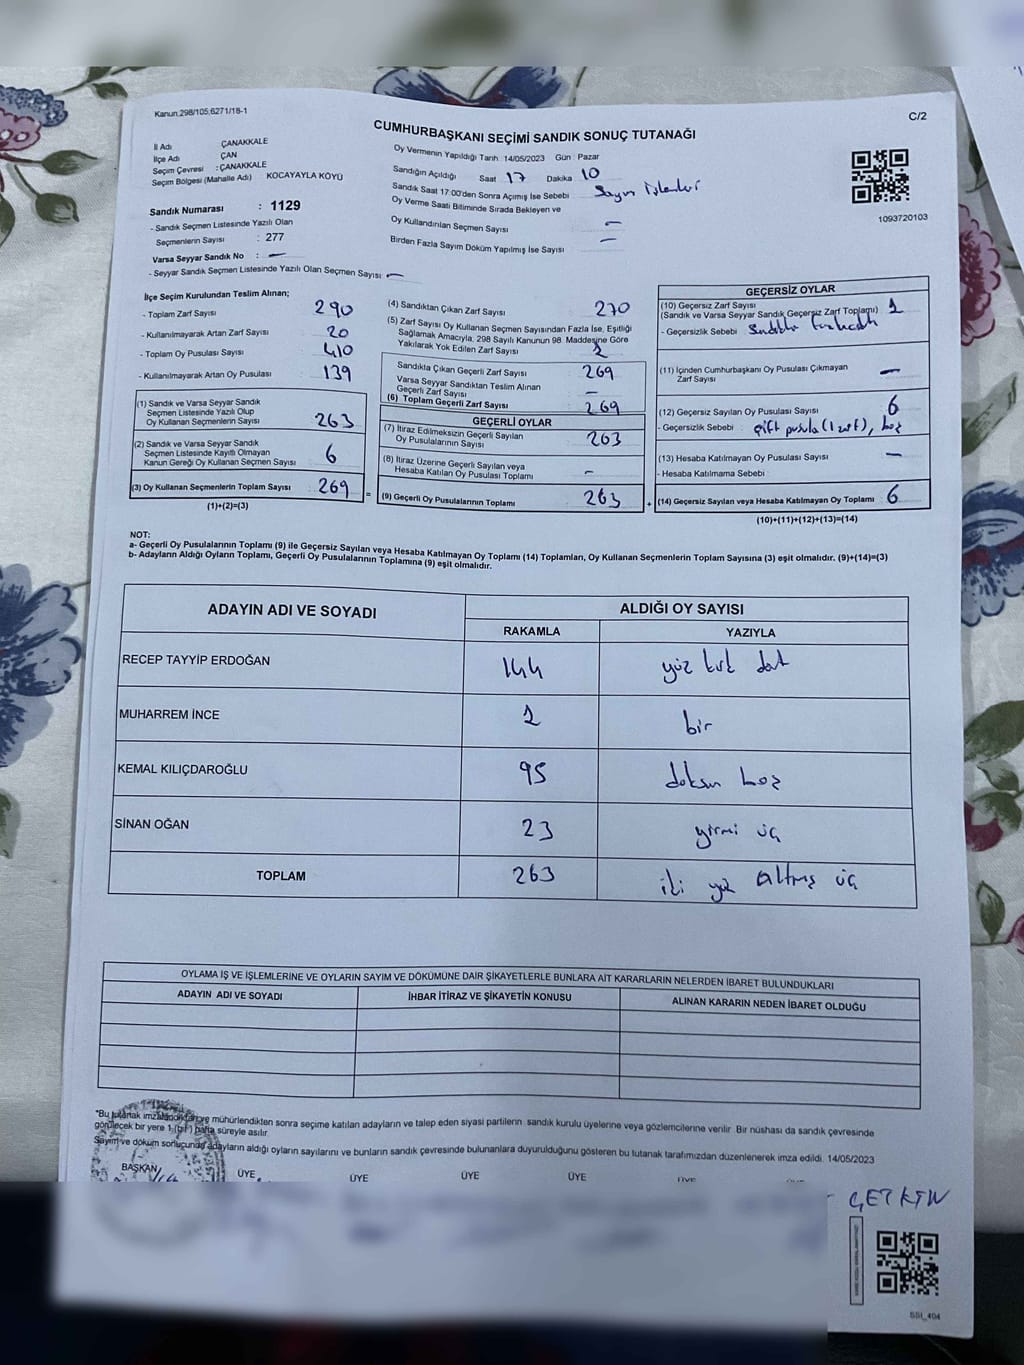 Kanun:298/105,6271/18-1
C/2
CUMHURBAŞKANI SEÇİMİ SANDIK SONUÇ TUTANAĞI
İl Adı ÇANAKKALE
İlçe Adı ÇAN
Seçim Çevresi : ÇANAKKALE
Seçim Bölgesi (Mahalle Adı) KOCAYAYLA KÖYÜ
Sandık Numarası : 1129
- Sandık Seçmen Listesinde Yazılı Olan
Seçmenlerin Sayısı : 277
Varsa Seyyar Sandık No : —
- Seyyar Sandık Seçmen Listesinde Yazılı Olan Seçmen Sayısı: —
Oy Vermenin Yapıldığı Tarih 14/05/2023 Gün Pazar
Sandığın Açıldığı Saat 17 Dakika 10
Sandık Saat 17:00'den Sonra Açımış İse Sebebi Sayım işlemleri
Oy Verme Saati Bitiminde Sırada Bekleyen ve
Oy Kullandırılan Seçmen Sayısı —
Birden Fazla Sayım Döküm Yapılmış İse Sayısı —
1093720103
İlçe Seçim Kurulundan Teslim Alınan;
- Toplam Zarf Sayısı 290
- Kullanılmayarak Artan Zarf Sayısı 20
- Toplam Oy Pusulası Sayısı 410
- Kullanılmayarak Artan Oy Pusulası 139
(1) Sandık ve Varsa Seyyar Sandık
Seçmen Listesinde Yazılı Olup
Oy Kullanan Seçmenlerin Sayısı 263
(2) Sandık ve Varsa Seyyar Sandık
Seçmen Listesinde Kayıtlı Olmayan
Kanun Gereği Oy Kullanan Seçmen Sayısı 6
(3) Oy Kullanan Seçmenlerin Toplam Sayısı 269
(1)+(2)=(3)
=
(4) Sandıktan Çıkan Zarf Sayısı 270
(5) Zarf Sayısı Oy Kullanan Seçmen Sayısından Fazla İse, Eşitliği
Sağlamak Amacıyla, 298 Sayılı Kanunun 98. Maddesine Göre
Yakılarak Yok Edilen Zarf Sayısı 1
Sandıkta Çıkan Geçerli Zarf Sayısı 269
Varsa Seyyar Sandıktan Teslim Alınan
Geçerli Zarf Sayısı —
(6) Toplam Geçerli Zarf Sayısı 269
GEÇERLİ OYLAR
(7) İtiraz Edilmeksizin Geçerli Sayılan
Oy Pusulalarının Sayısı 263
(8) İtiraz Üzerine Geçerli Sayılan veya
Hesaba Katılan Oy Pusulası Toplamı —
(9) Geçerli Oy Pusulalarının Toplamı 263
+
GEÇERSİZ OYLAR
(10) Geçersiz Zarf Sayısı
(Sandık ve Varsa Seyyar Sandık Geçersiz Zarf Toplamı) 1
- Geçersizlik Sebebi
(11) İçinden Cumhurbaşkanı Oy Pusulası Çıkmayan
Zarf Sayısı —
(12) Geçersiz Sayılan Oy Pusulası Sayısı 6
- Geçersizlik Sebebi : çift pusula (1 zarf),
(13) Hesaba Katılmayan Oy Pusulası Sayısı —
- Hesaba Katılmama Sebebi
(14) Geçersiz Sayılan veya Hesaba Katılmayan Oy Toplamı 6
(10)+(11)+(12)+(13)=(14)
NOT:
a- Geçerli Oy Pusulalarının Toplamı (9) ile Geçersiz Sayılan veya Hesaba Katılmayan Oy Toplamı (14) Toplamları, Oy Kullanan Seçmenlerin Toplam Sayısına (3) eşit olmalıdır. (9)+(14)=(3)
b- Adayların Aldığı Oyların Toplamı, Geçerli Oy Pusulalarının Toplamına (9) eşit olmalıdır.
ADAYIN ADI VE SOYADI ALDIĞI OY SAYISI
RAKAMLA YAZIYLA
RECEP TAYYİP ERDOĞAN 144 yüz kırk dört
MUHARREM İNCE 1 bir
KEMAL KILIÇDAROĞLU 95 doksan beş
SİNAN OĞAN 23 yirmi üç
TOPLAM 263 iki yüz altmış üç
OYLAMA İŞ VE İŞLEMLERİNE VE OYLARIN SAYIM VE DÖKÜMÜNE DAİR ŞİKAYETLERLE BUNLARA AİT KARARLARIN NELERDEN İBARET BULUNDUKLARI
ADAYIN ADI VE SOYADI İHBAR İTİRAZ VE ŞİKAYETİN KONUSU ALINAN KARARIN NEDEN İBARET OLDUĞU
"Bu tutanak imzalandıktan ve mühürlendikten sonra seçime katılan adayların ve talep eden siyasi partilerin sandık kurulu üyelerine veya gözlemcilerine verilir. Bir nüshası da sandık çevresinde
görülecek bir yere 1 (bir) hafta süreyle asılır.
Sayım ve döküm sonucunda adayların aldığı oyların sayılarını ve bunların sandık çevresinde bulunanlara duyurulduğunu gösteren bu tutanak tarafımızdan düzenlenerek imza edildi. 14/05/2023
BAŞKAN ÜYE ÜYE ÜYE ÜYE
ÇETKİN
SSİ_404